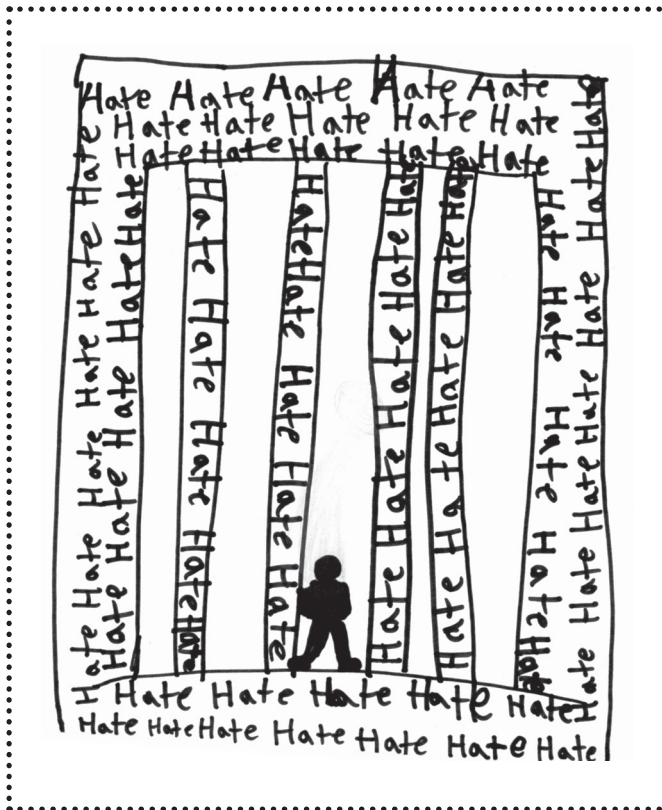 Hate Hate Hate Hate Hate
Hate Hate Hate Hate Hate
Hate Hate Hate Hate Hate
Hate Hate Hate Hate Hate Hate Hate
Hate Hate Hate Hate Hate Hate
Hate Hate Hate Hate Hate
Hate Hate Hate Hate Hate
Hate Hate Hate Hate Hate
Hate Hate Hate Hate Hate
Hate Hate Hate Hate Hate
Hate Hate Hate Hate Hate Hate Hate
Hate Hate Hate Hate Hate
Hate Hate Hate Hate Hate Hate Hate